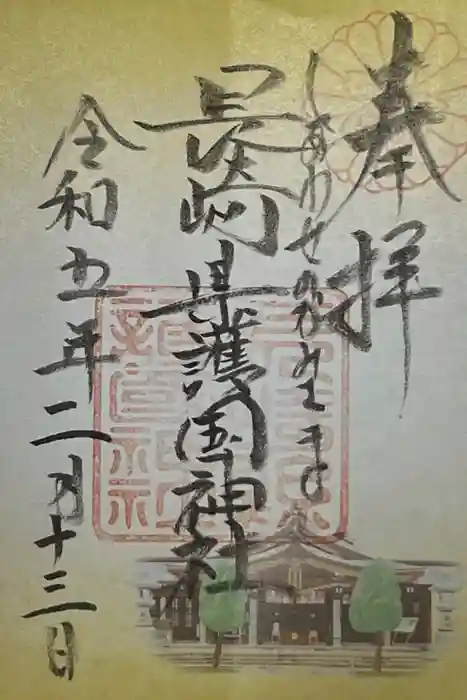 奉拝
しあわせのかみさま
長崎県護国神社
令和五年二月十三日